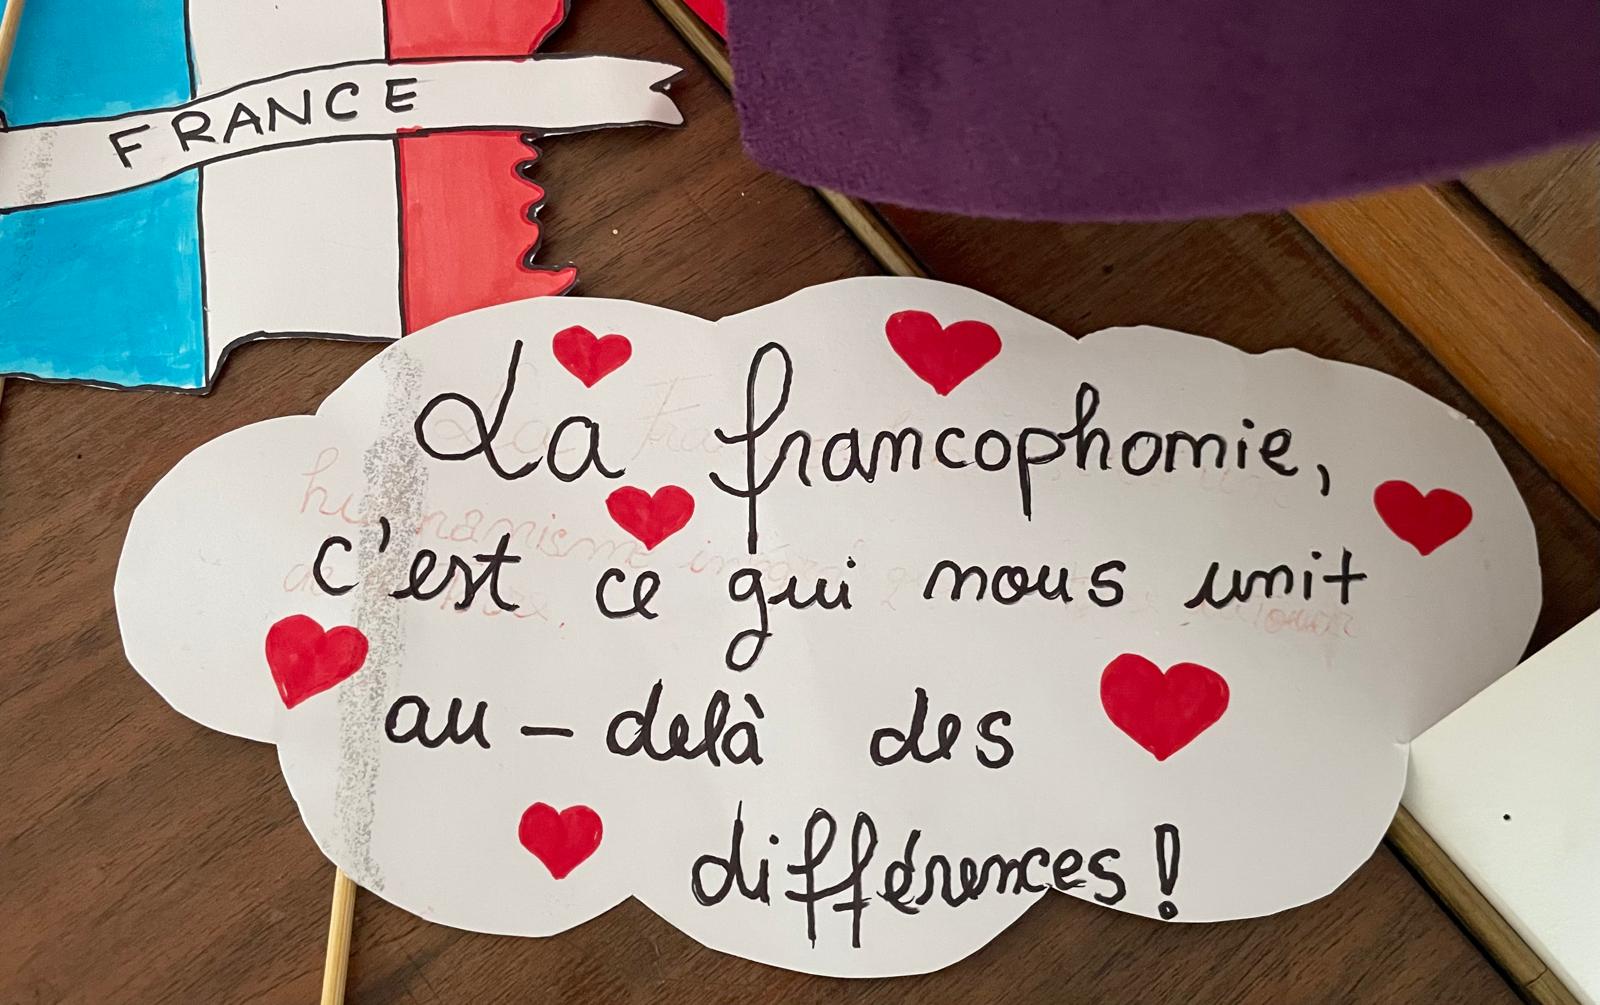 FRANCE
La francophonie,
c'est ce qui nous unit
au-delà des
différences !